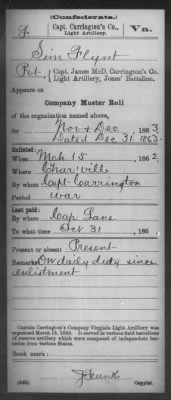 (Confederate.)
F Capt. Carrington's Co., Light Artillery. Va.
Sim Flynt
Pvt Capt. James McD. Carrington's Co., Light Artillery, Jones' Battalion.
Appears on
Company Muster Roll
of the organization named above,
for Nov & Dec, 1863
Dated Dec 31, 1863.
Enlisted:
When Mch 15, 1862
Where Char'ville
By whom Capt Carrington
Period war
Last paid:
By whom Cap Lane
To what time Oct 31, 186
Present or absent Present
Remarks: On daily duty since
enlistment
Captain Carrington's Company Virginia Light Artillery was
organized March 15, 1862. It served in various field battalions
of reserve artillery which were composed of independent batteries
from various States.
Book mark:
(642)
Copyist.